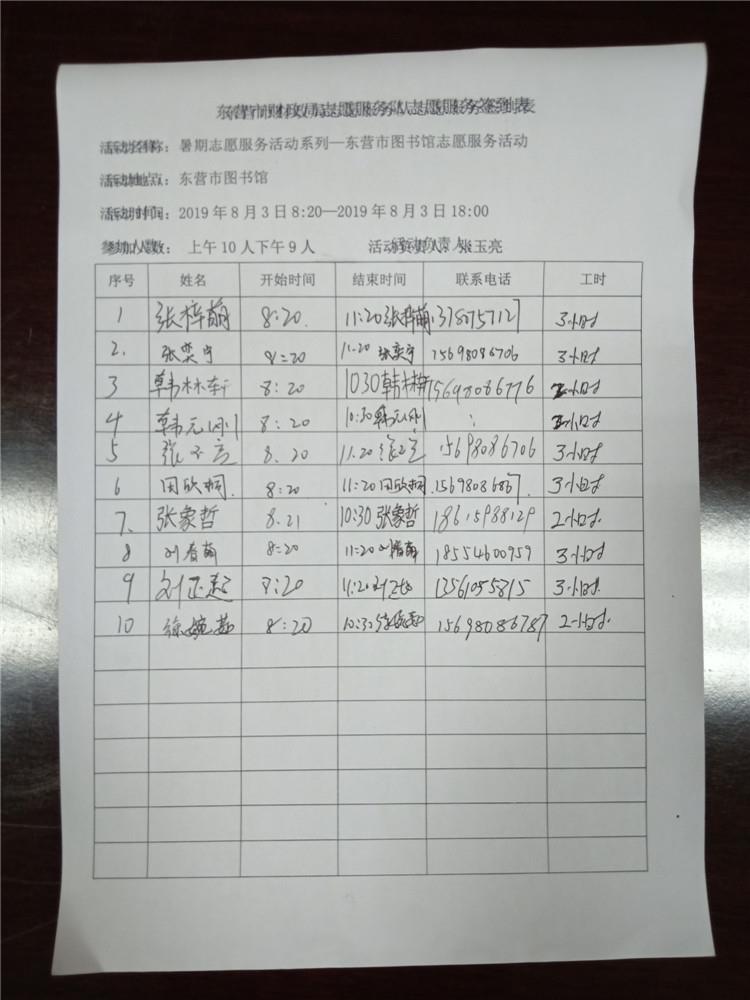 东营市财政局志愿服务队志愿服务签到表
活动名称：暑期志愿服务活动系列—东营市图书馆志愿服务活动
活动地点：东营市图书馆
活动时间：2019年8月3日8:20—2019年8月3日18:00
参加人数： 上午10人下午9人 活动负责人：张玉亮
序号 姓名 开始时间 结束时间 联系电话 工时
1 张梓萌 8:20 11:20张梓萌 3小时
2. 张奕宁 8:20 11:20 张奕宁 15698086706 3小时
3 韩林轩 8:20 1030韩林轩 15698086776 小时
4 韩元刚 8:20 10:30韩元刚 小时
5 张 8.20 11.20 15698086706 3小时
6 田欣桐. 8:20 11:20田欣桐. 3小时
7. 张象哲 8.21 10:30张象哲 18615988129 2小时.
8 刘春萌 8:20 11:20刘春萌 18554600959 3小时
9 刘正 8:20 11:20刘正 13561055815 3小时.
10 徐婉茹 8:20 徐婉茹 15698086787 2小时.